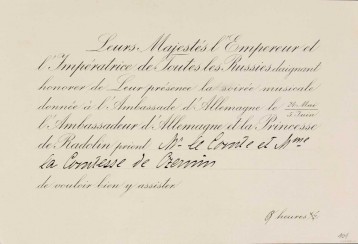 Leurs Majestés l'Empereur et
l'Impératrice de Toutes les Russies daignant
honorer de Leur présence la soirée musicale
donnée à l'Ambassade d'Allemagne le 24 Mai
5 Juin
l'Ambassadeur d'Allemagne et la Princesse
de Radolin prient Mr le Comte et Mme
la Comtesse de
de vouloir bien y assister
heures